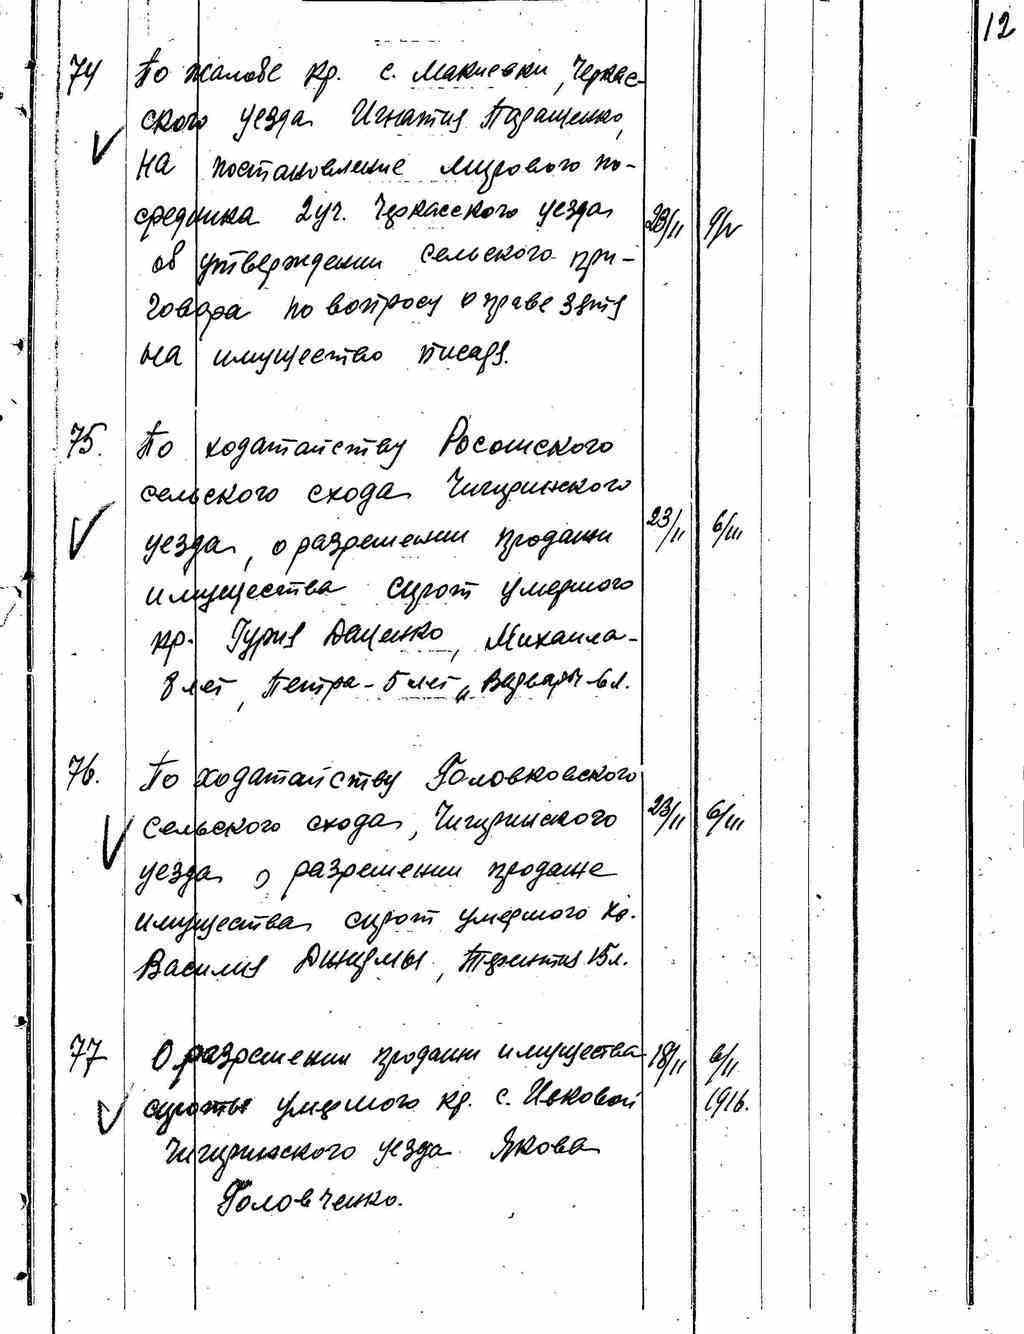 12
74 По жалобе кр. с. Макиевки, Черкас-
ского уезда Игнатия Паращенко,
на постановление мирового по-
средника 2 уч. Черкасского уезда 23/II 9/V
об утверждении сельского при-
говора по вопросу о праве зятя
на имущество писаря.
75. По ходатайству Росошского
сельского схода Чигиринского
уезда, о разрешении продажи 23/II 6/III
имущества сирот умершого
кр. Гурия Даценко, Михаила-
8 лет, Петра - 5 лет, Варвары - 6 л.
76. По ходатайству Головковского
сельского схода, Чигиринского 23/II 6/III
уезда о разрешении продаже
имущества сирот умершого кр.
Василия, Терентия 15 л.
77 О разрешении продажи имущества 18/II 6/II
сироты умершого кр. с. Ивковой 1916.
Чигиринского уезда Якова
Головченко.